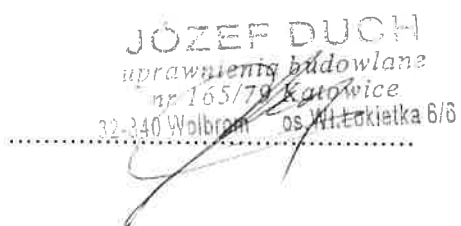 JÓZEF DUCH
uprawnienia budowlane
nr 165/79 Katowice
32-340 Wolbrom os. Wł. Łokietka 6/6